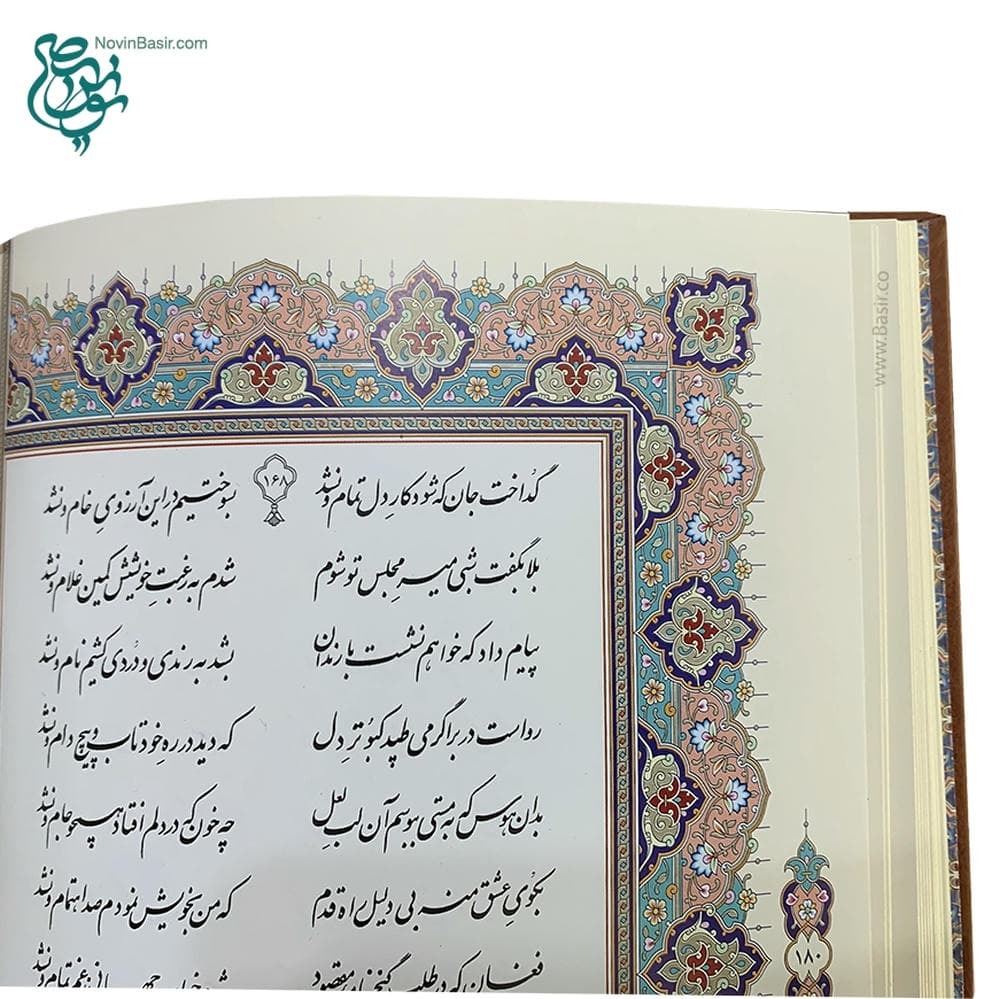 NovinBasir.com
نوین بصیر
www.Basir.co
۱۶۸
گداخت جان که شود کارِ دل تمام و نشد بسوختیم در این آرزویِ خام و نشد
بلا بگفت شبی میرِ مجلس تو شوم شدم به رغبتِ خویشش کمین غلام و نشد
پیام داد که خواهم نشست با رندان بشد به رندی و دُردی کشیم نام و نشد
رواست در بر اگر می طپد کبوترِ دل که دید در رهِ خود تاب و پیچِ دام و نشد
بدان هوس که به مستی ببوسم آن لبِ لعل چه خون که در دلم افتاد همچو جام و نشد
بکویِ عشق منه بی دلیلِ راه قدم که من بخویش نمودم صد اهتمام و نشد
فغان که در طلب گنج مقصود تمام و نشد
۱۸۰